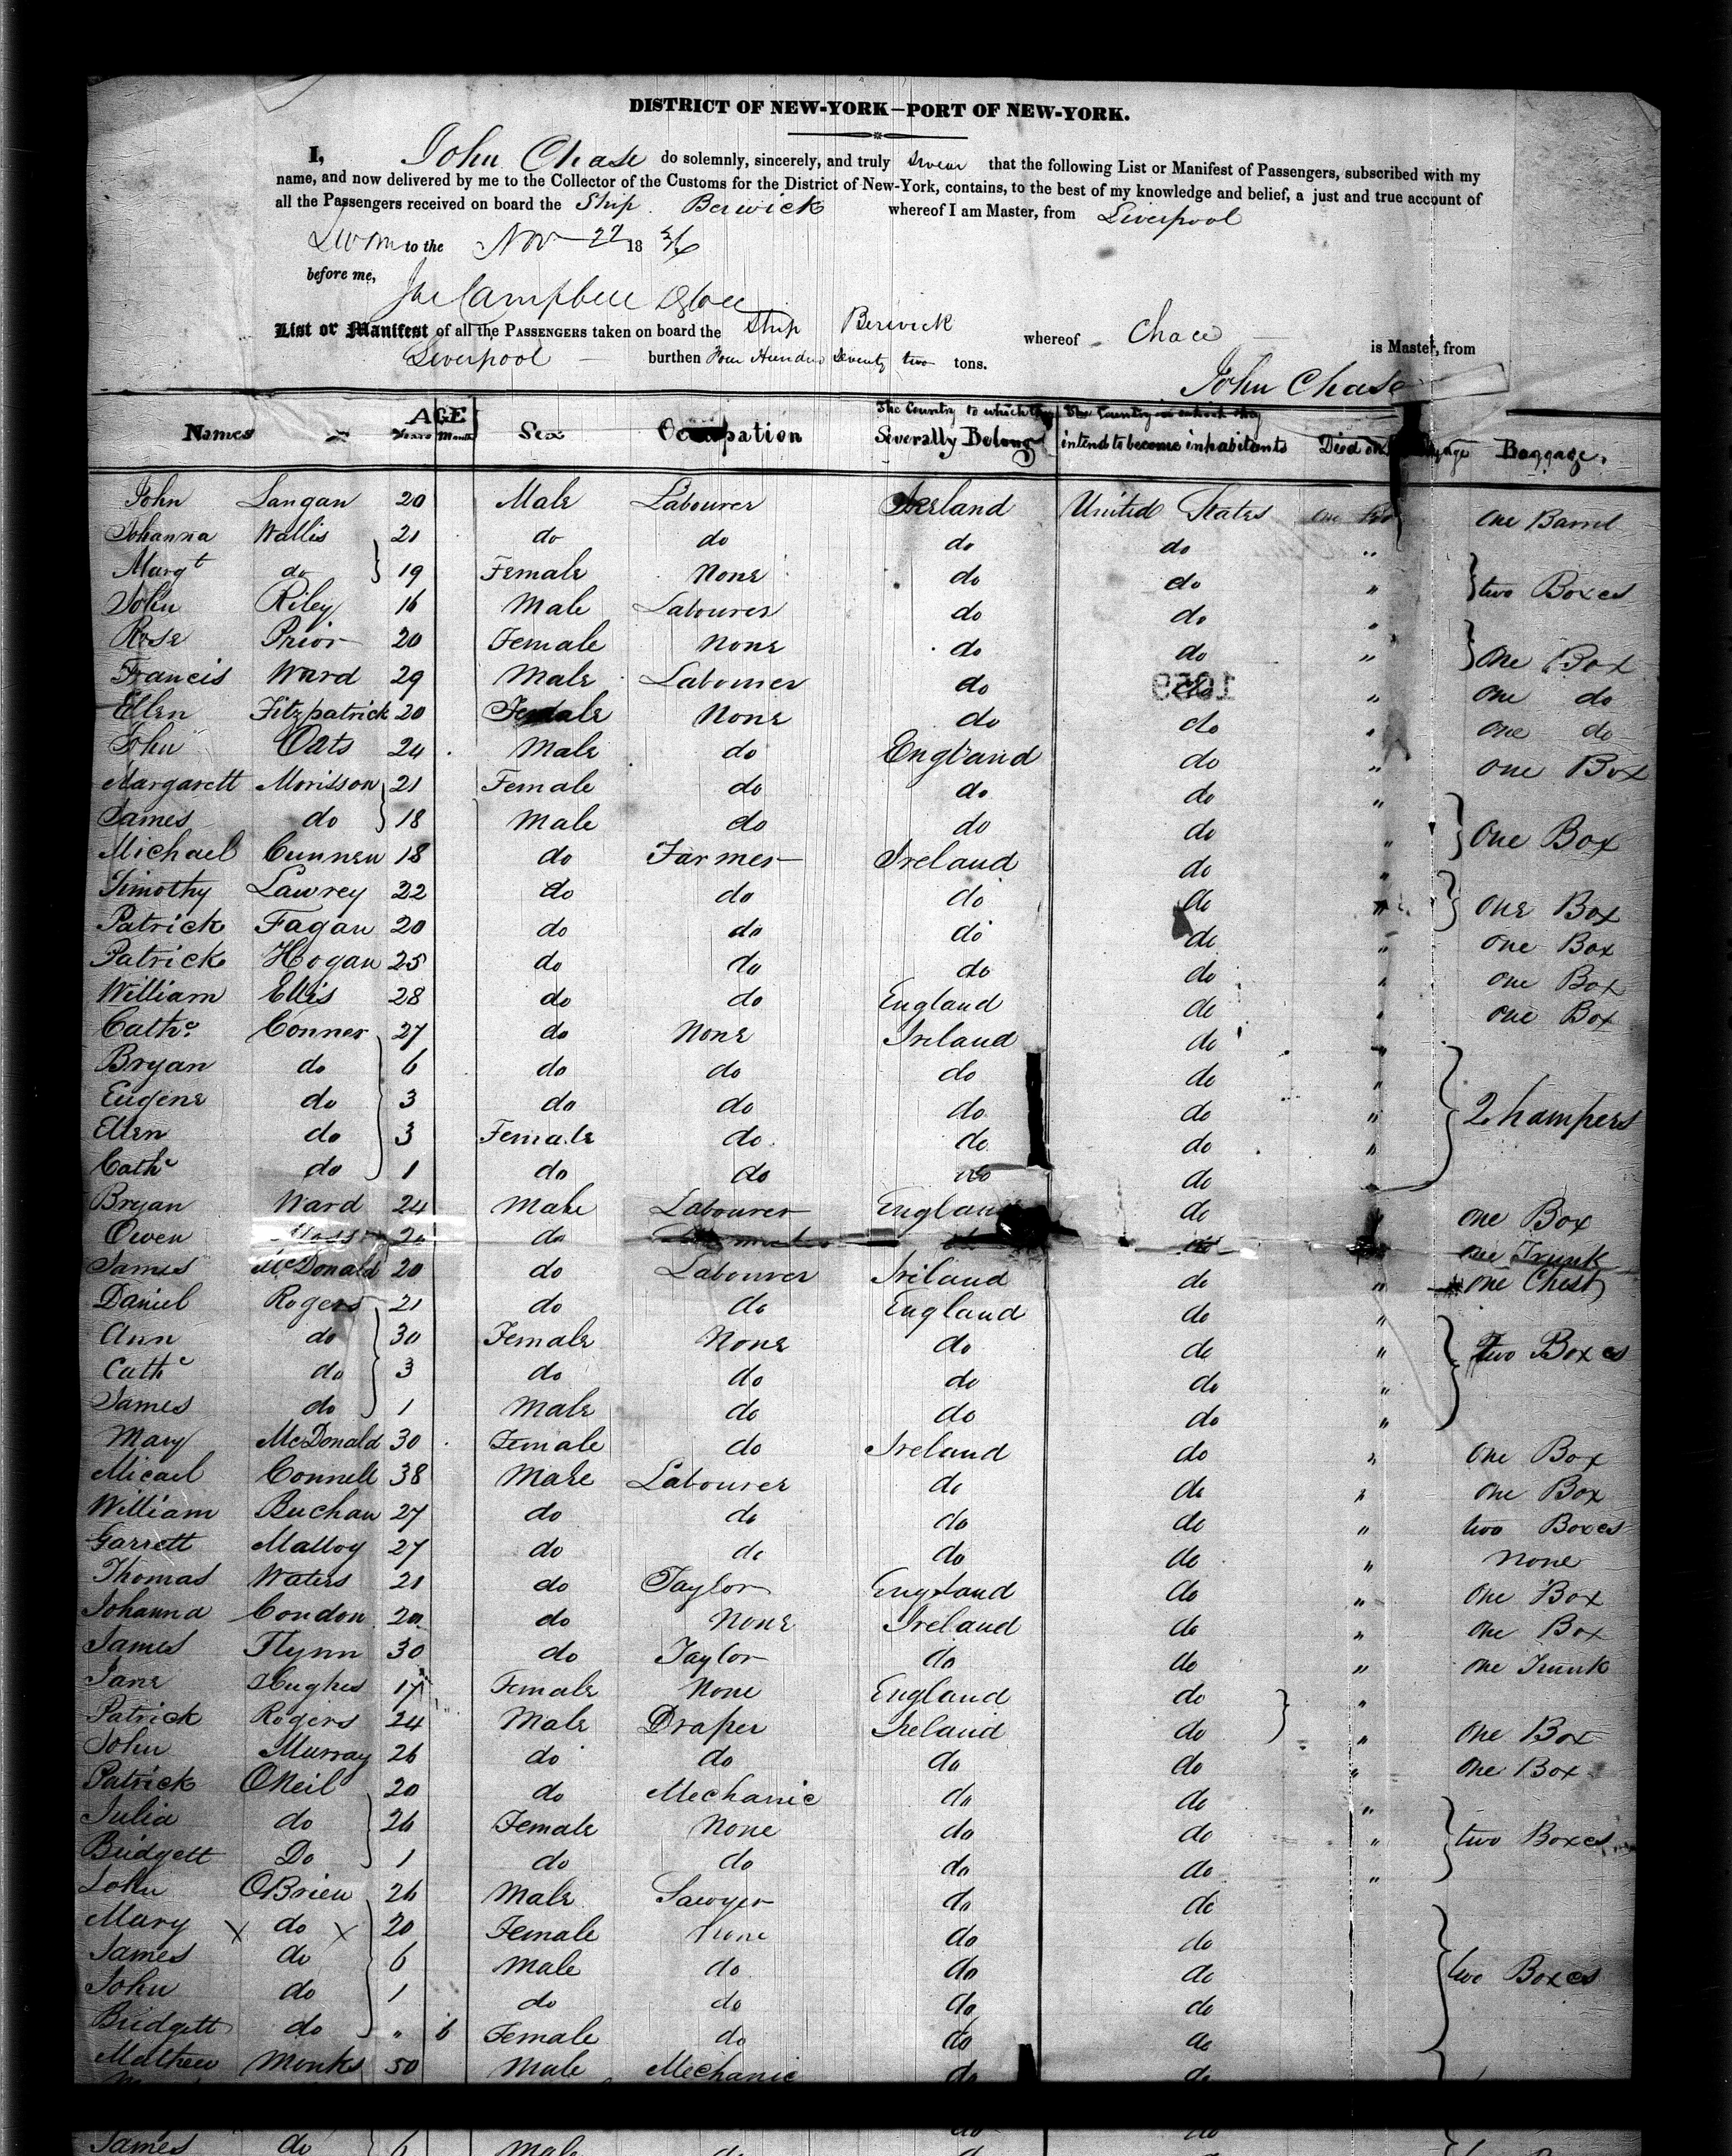 DISTRICT OF NEW-YORK—PORT OF NEW-YORK.
I, John Chase do solemnly, sincerely, and truly swear that the following List or Manifest of Passengers, subscribed with my
name, and now delivered by me to the Collector of the Customs for the District of New-York, contains, to the best of my knowledge and belief, a just and true account of
all the Passengers received on board the Ship Berwick whereof I am Master, from Liverpool
Sworn to the Nov 22 1836
before me,
Campbell
List or Manifest of all the PASSENGERS taken on board the Ship Berwick whereof Chace is Master, from
Liverpool burthen Four Hundred Seventy two tons.
John Chase
Names AGE Years Months Sex Occupation The Country to which they Severally Belong The Country in which they intend to become inhabitants Died on Voyage Baggage.
John Langan 20 Male Labourer Ireland United States one Barrel
Johanna Wallis 21 do do do do "
Margt do 19 Female None do do " two Boxes
John Riley 16 Male Labourer do do "
Rose Prior 20 Female None do do " One Box
Francis Ward 29 Male Labourer do do " one do
Ellen Fitzpatrick 20 Female None do do " one do
John Oats 24 Male do England do " one Box
Margarett Morisson 21 Female do do do "
James do 18 Male do do do " One Box
Michael Cunnen 18 do Farmer Ireland do "
Timothy Lawrey 22 do do do do " One Box
Patrick Fagan 20 do do do do " one Box
Patrick Hogan 25 do do do do " one Box
William Ellis 28 do do England do " one Box
Cathe Conner 27 do None Ireland do "
Bryan do 6 do do do do "
Eugene do 3 do do do do " 2 hampers
Ellen do 3 Female do do do "
Cathe do 1 do do do do "
Bryan Ward 24 Male Labourer England do one Box
Owen do one Trunk
James McDonald 20 do Labourer Ireland do " one Chest
Daniel Rogers 21 do do England do "
Ann do 30 Female None do do " Two Boxes
Cathe do 3 do do do do "
James do 1 Male do do do "
Mary McDonald 30 Female do Ireland do " one Box
Micael Connell 38 Male Labourer do do " one Box
William Buchan 27 do do do do " two Boxes
Garrett Malloy 27 do do do do " None
Thomas Waters 21 do Taylor England do " one Box
Johanna Condon 20 do None Ireland do " one Box
James Flynn 30 do Taylor do do " one Trunk
Jane Hughes 17 Female None England do "
Patrick Rogers 24 Male Draper Ireland do " one Box
John Murray 26 do do do do " one Box
Patrick ONeil 20 do Mechanic do do "
Julia do 26 Female None do do " two Boxes
Bridgett Do 1 do do do do "
John OBrien 26 Male Sawyer do do
Mary x do x 20 Female none do do
James do 6 Male do do do two Boxes
John do 1 do do do do
Bridgett do " 6 Female do do do
Mathew Monks 50 Male Mechanic do do
James do 6 Male do do do